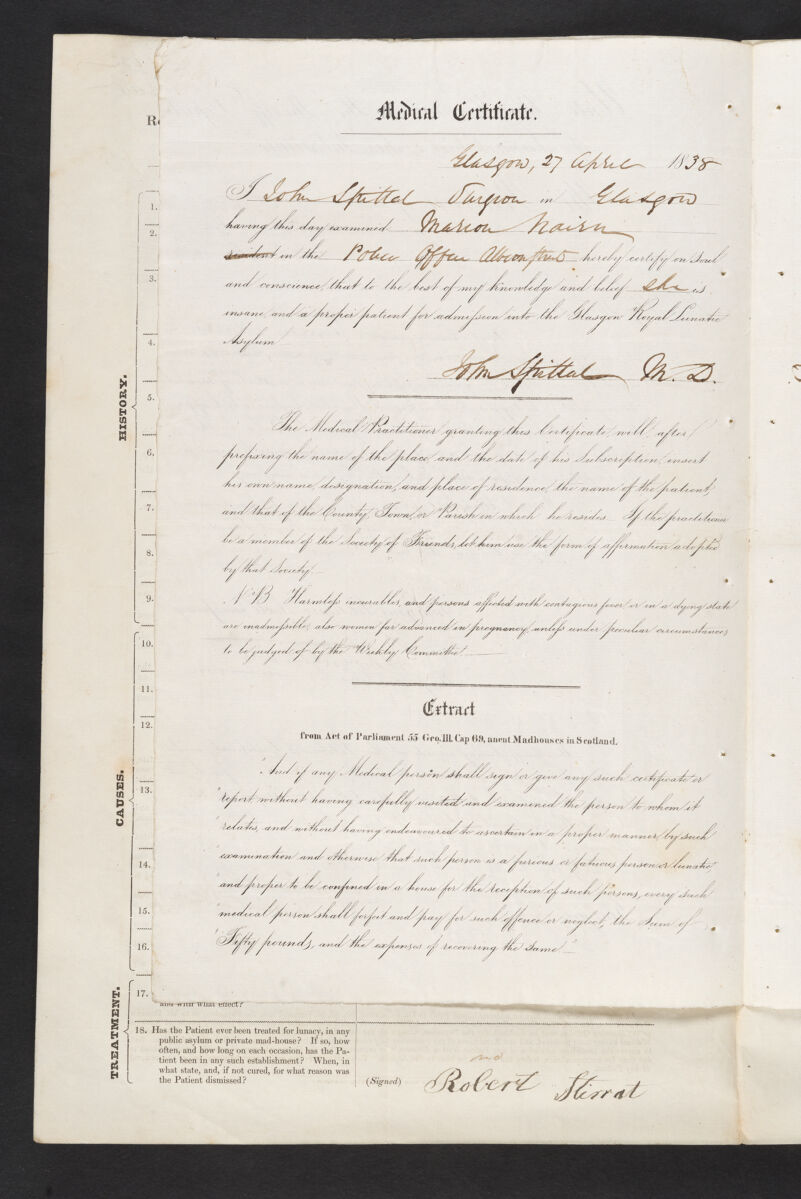 Medical Certificate.
Glasgow, 27 April 1838
I John Spittal Surgeon in Glasgow
having this day examined Marion Nairn
resident in the Police Office Albion Street hereby certify on soul
and conscience, that to the best of my knowledge and belief she is
insane and a proper patient for admission into the Glasgow Royal Lunatic
Asylum
John Spittal M.D.
The Medical Practitioner granting this Certificate will, after
prefixing the name of the place, and the date of his Subscription, insert
his own name, designation, and place of residence, the name of the patient,
and that of the County, Town, or Parish in which he resides. If the practitioner
be a member of the Society of Friends, let him use the form of affirmation adopted
by that Society.
N.B. Harmless incurables, and persons affected with contagious fever or in a dying state
are inadmissible, also women far advanced in pregnancy, unless under peculiar circumstances
to be judged of by the Weekly Committee
Extract
from Act of Parliament 55 Geo. III. Cap 69, anent Madhouses in Scotland.
"And if any Medical person shall sign or give any such certificate or
"report, without having carefully visited and examined the person to whom it
"relates, and without having endeavoured to ascertain in a proper manner by such
"examination and otherwise that such person is a furious or fatuous person or lunatic,
"and proper to be confined in a house for the reception of such persons, every such
"medical person shall forfeit and pay for such offence or neglect, the Sum of
"Fifty pounds, and the expenses of recovering the same"
HISTORY.
CAUSES.
TREATMENT.
1.
2.
3.
4.
5.
6.
7.
8.
9.
10.
11.
12.
13.
14.
15.
16.
17.
and with what effect?
18. Has the Patient ever been treated for lunacy, in any
public asylum or private mad-house? If so, how
often, and how long on each occasion, has the Pa-
tient been in any such establishment? When, in
what state, and, if not cured, for what reason was
the Patient dismissed?
no
(Signed) Robert Stirrat